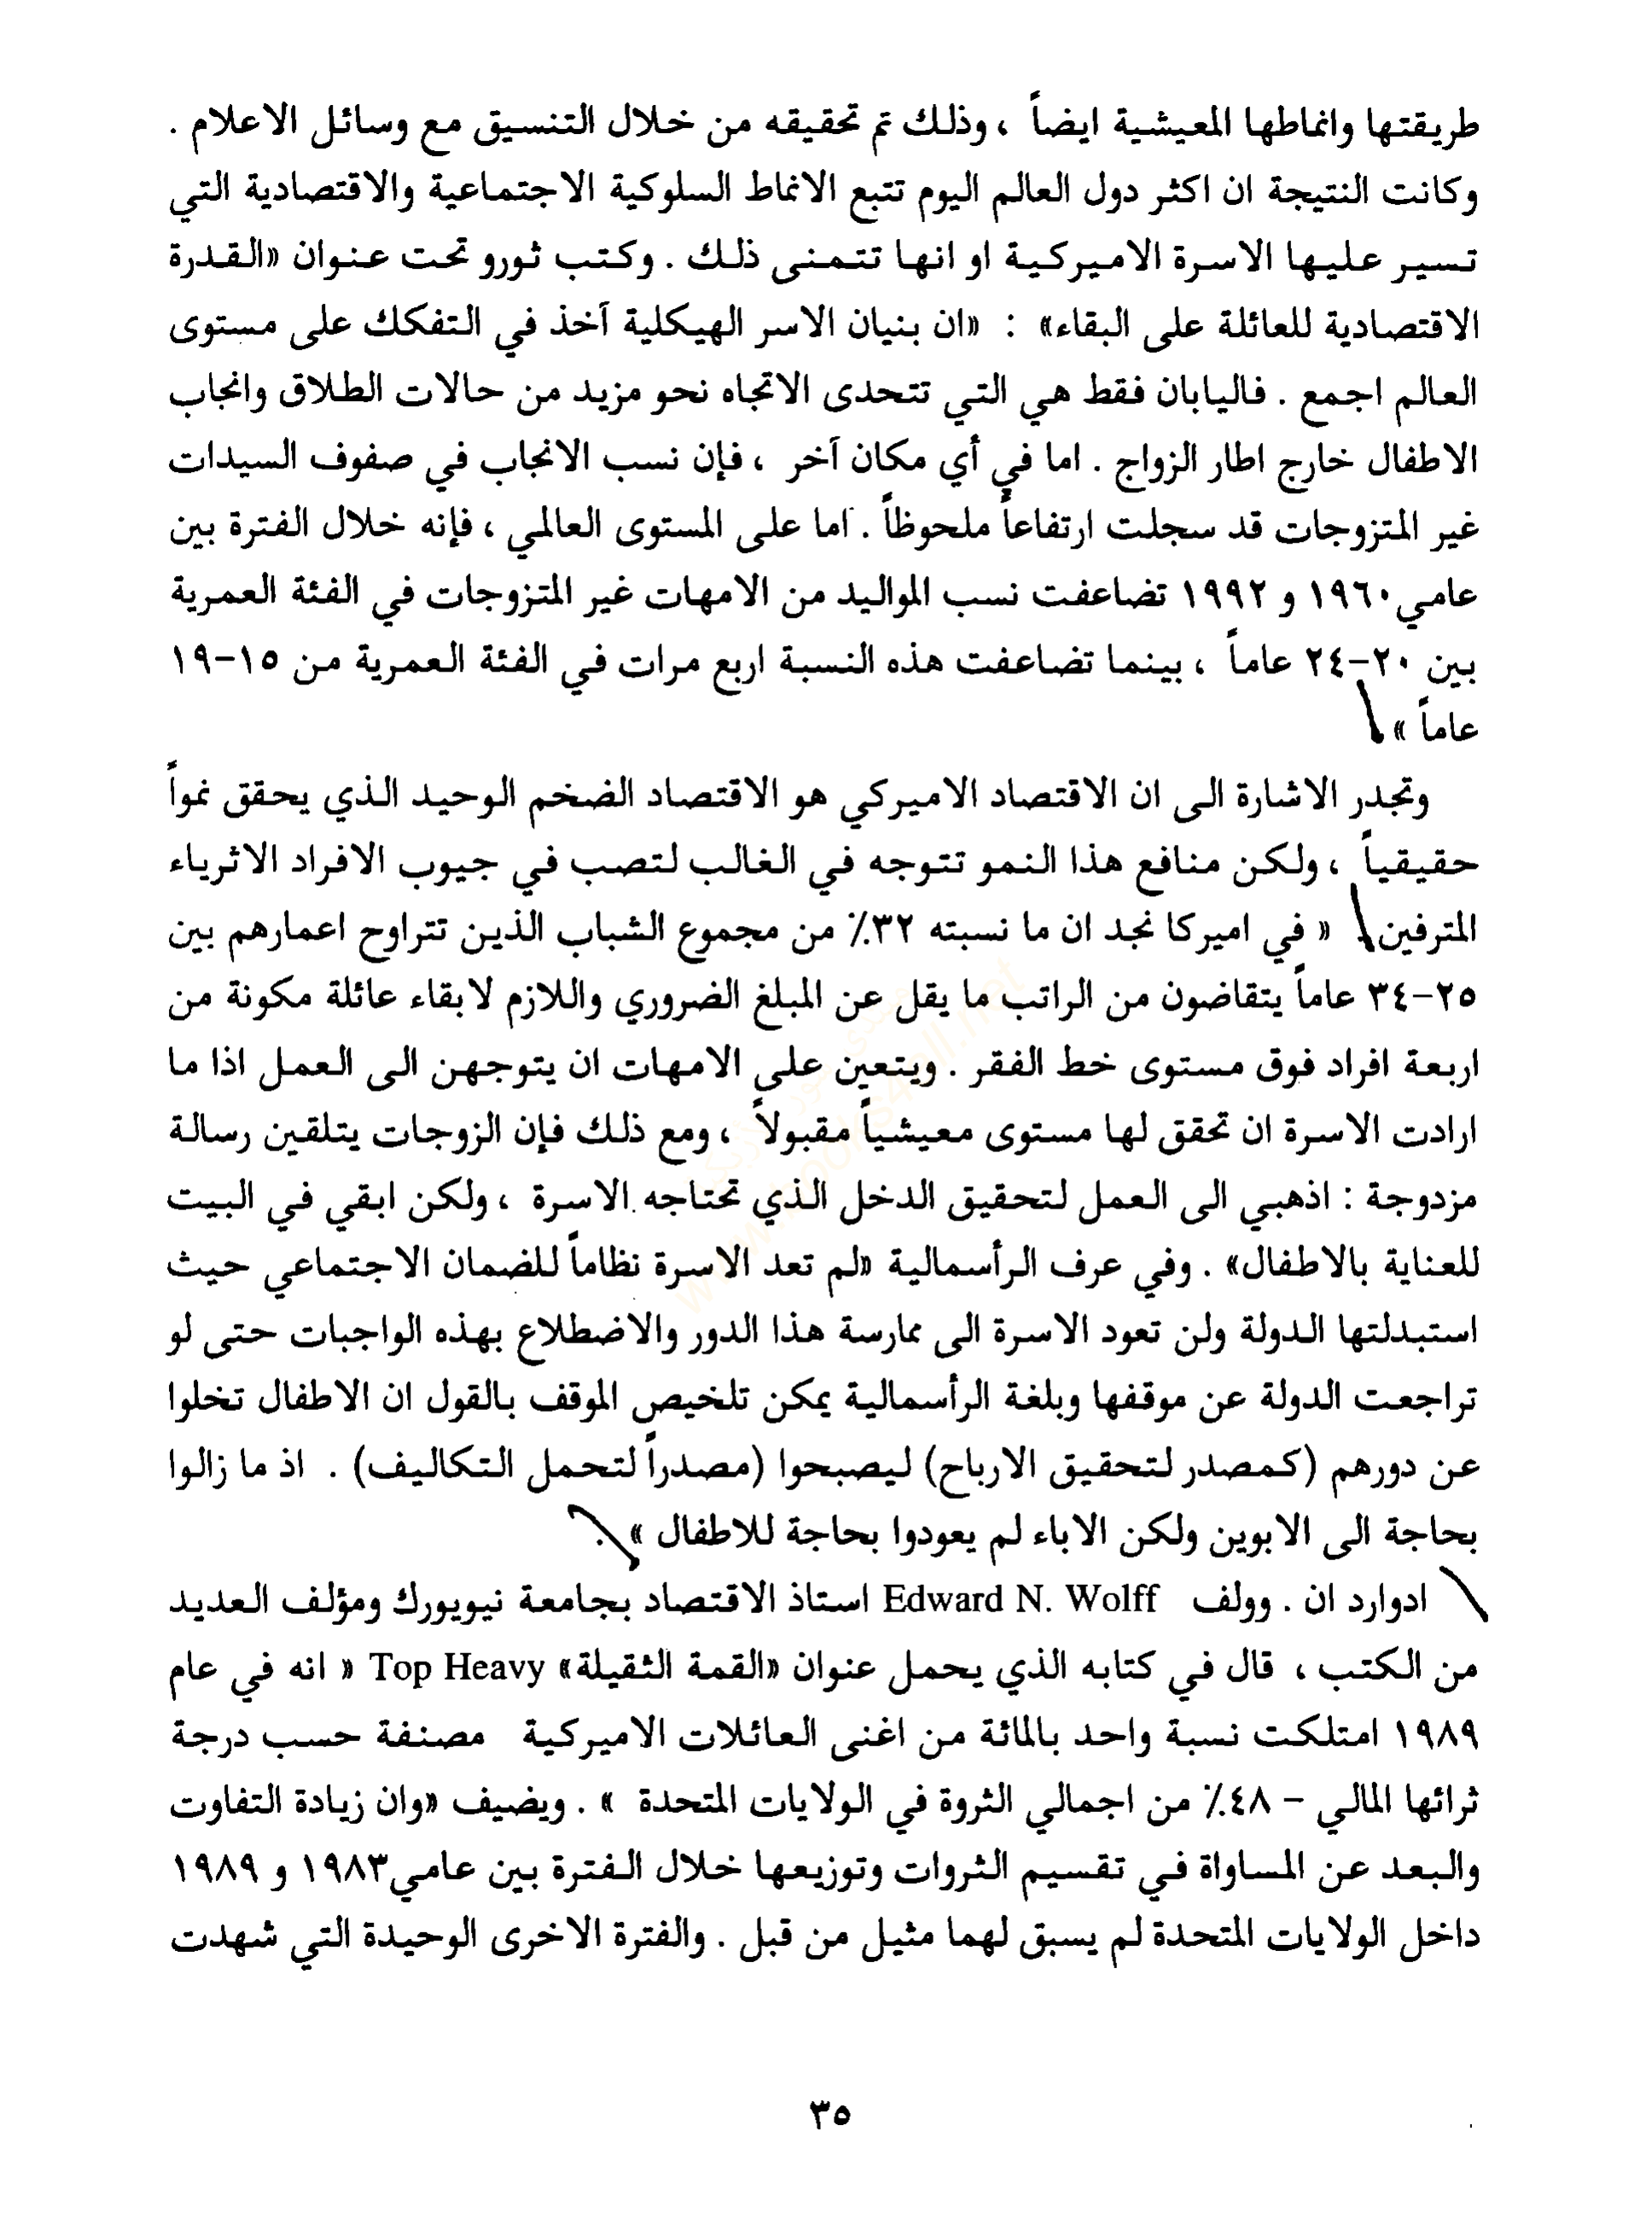 طريقتها وانماطها المعيشية ايضاً ، وذلك تم تحقيقه من خلال التنسيق مع وسائل الاعلام .
وكانت النتيجة ان اكثر دول العالم اليوم تتبع الانماط السلوكية الاجتماعية والاقتصادية التي
تسير عليها الاسرة الاميركية او انها تتمنى ذلك . وكتب ثورو تحت عنوان «القدرة
الاقتصادية للعائلة على البقاء» : «ان بنيان الاسر الهيكلية آخذ في التفكك على مستوى
العالم اجمع . فاليابان فقط هي التي تتحدى الاتجاه نحو مزيد من حالات الطلاق وانجاب
الاطفال خارج اطار الزواج . اما في أي مكان آخر ، فإن نسب الانجاب في صفوف السيدات
غير المتزوجات قد سجلت ارتفاعاً ملحوظاً . اما على المستوى العالمي ، فإنه خلال الفترة بين
عامي١٩٦٠ و ١٩٩٢ تضاعفت نسب المواليد من الامهات غير المتزوجات في الفئة العمرية
بين ٢٠-٢٤ عاماً ، بينما تضاعفت هذه النسبة اربع مرات في الفئة العمرية من ١٥-١٩
عاماً »
وتجدر الاشارة الى ان الاقتصاد الاميركي هو الاقتصاد الضخم الوحيد الذي يحقق نمواً
حقيقياً ، ولكن منافع هذا النمو تتوجه في الغالب لتصب في جيوب الافراد الاثرياء
المترفين « في اميركا نجد ان ما نسبته ٣٢٪ من مجموع الشباب الذين تتراوح اعمارهم بين
٢٥-٣٤ عاماً يتقاضون من الراتب ما يقل عن المبلغ الضروري واللازم لابقاء عائلة مكونة من
اربعة افراد فوق مستوى خط الفقر . ويتعين على الامهات ان يتوجهن الى العمل اذا ما
ارادت الاسرة ان تحقق لها مستوى معيشياً مقبولاً ، ومع ذلك فإن الزوجات يتلقين رسالة
مزدوجة : اذهبي الى العمل لتحقيق الدخل الذي تحتاجه الاسرة ، ولكن ابقي في البيت
للعناية بالاطفال» . وفي عرف الرأسمالية «لم تعد الاسرة نظاماً للضمان الاجتماعي حيث
استبدلتها الدولة ولن تعود الاسرة الى ممارسة هذا الدور والاضطلاع بهذه الواجبات حتى لو
تراجعت الدولة عن موقفها وبلغة الرأسمالية يمكن تلخيص الموقف بالقول ان الاطفال تخلوا
عن دورهم (كمصدر لتحقيق الارباح) ليصبحوا (مصدراً لتحمل التكاليف) . اذ ما زالوا
بحاجة الى الابوين ولكن الاباء لم يعودوا بحاجة للاطفال » .
ادوارد ان . وولف Edward N. Wolff استاذ الاقتصاد بجامعة نيويورك ومؤلف العديد
من الكتب ، قال في كتابه الذي يحمل عنوان «القمة الثقيلة» Top Heavy « انه في عام
١٩٨٩ امتلكت نسبة واحد بالمائة من اغنى العائلات الاميركية مصنفة حسب درجة
ثرائها المالي - ٤٨٪ من اجمالي الثروة في الولايات المتحدة » . ويضيف «وان زيادة التفاوت
والبعد عن المساواة في تقسيم الثروات وتوزيعها خلال الفترة بين عامي١٩٨٣ و ١٩٨٩
داخل الولايات المتحدة لم يسبق لهما مثيل من قبل . والفترة الاخرى الوحيدة التي شهدت
٣٥